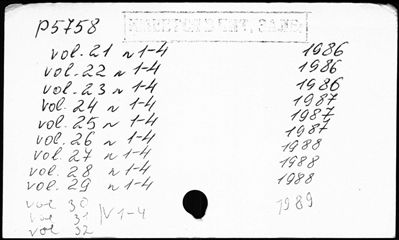 P5758
vol. 21 n 1-4 1986
vol. 22 n 1-4 1986
vol. 23 n 1-4 1986
vol. 24 n 1-4 1987
vol. 25 n 1-4 1987
vol. 26 n 1-4 1987
vol. 27 n 1-4 1988
vol. 28 n 1-4 1988
vol. 29 n 1-4 1988
vol 30
vol 31 N 1-4 1989
vol 32